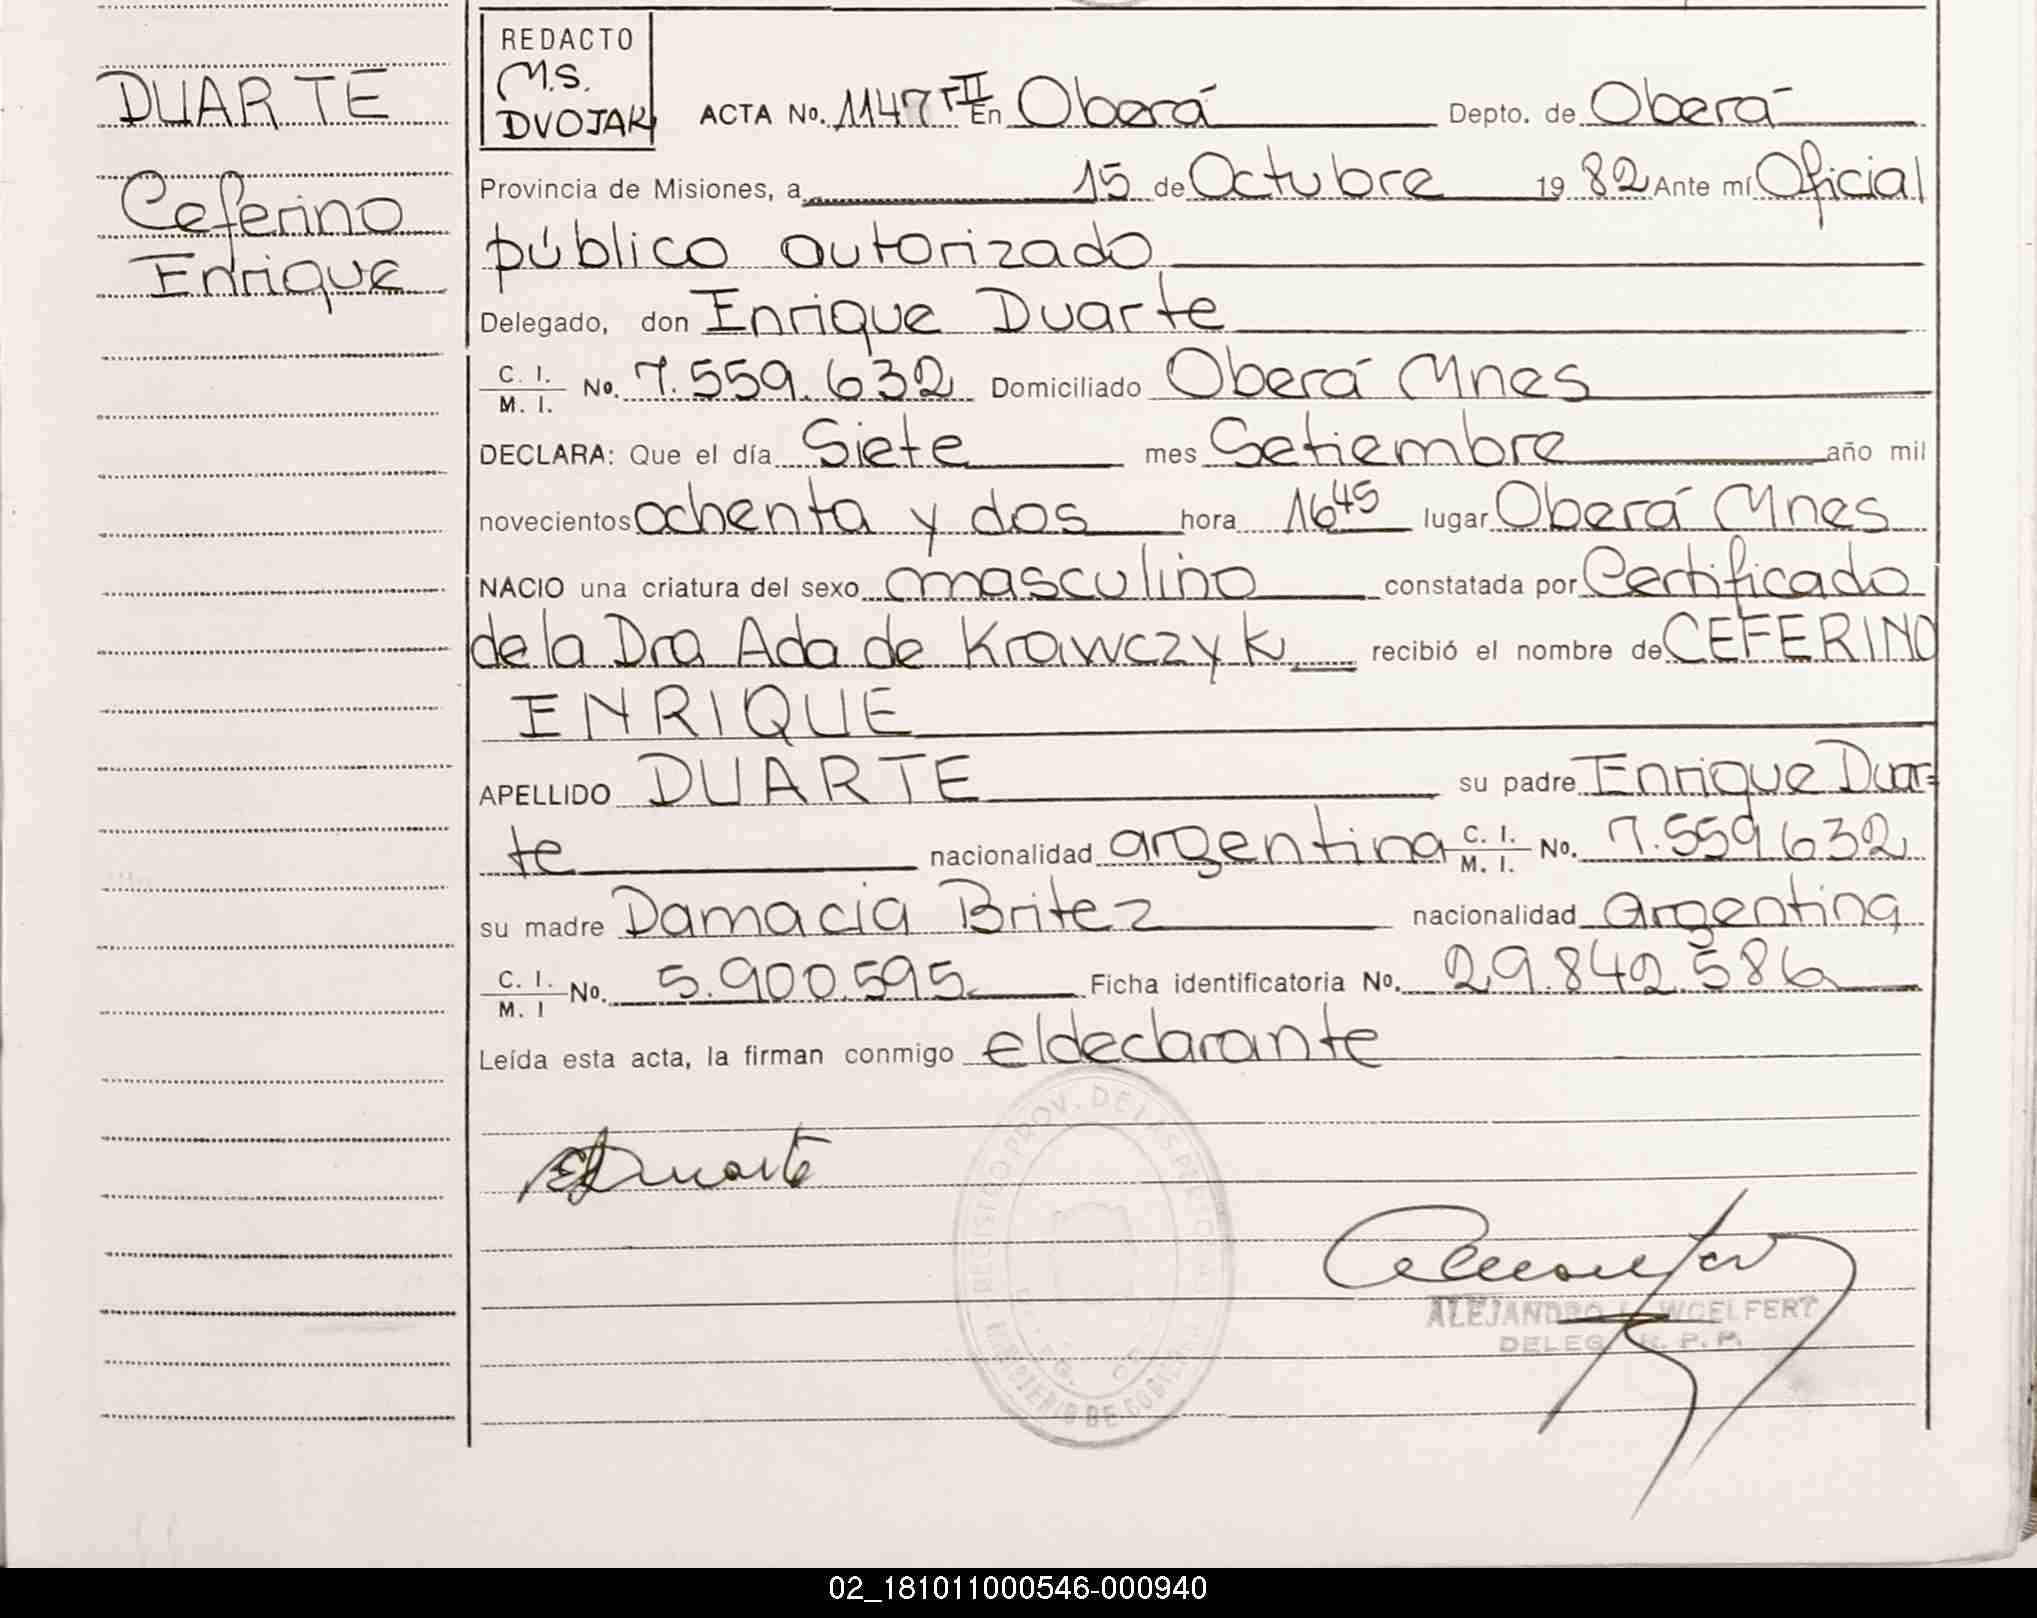 DUARTE
Ceferino
Enrique
REDACTO
M.S.
DVOJAK
ACTA No. 1147 TII En Oberá Depto. de Oberá
Provincia de Misiones, a 15 de Octubre 19 82 Ante mí Oficial
público autorizado
Delegado, don Enrique Duarte
C. I. / M. I. No. 7.559.632 Domiciliado Oberá Mnes
DECLARA: Que el día Siete mes Setiembre año mil
novecientos ochenta y dos hora 16 45 lugar Oberá Mnes
NACIO una criatura del sexo masculino constatada por Certificado
de la Dra Ada de Krawczyk recibió el nombre de CEFERINO
ENRIQUE
APELLIDO DUARTE su padre Enrique Duar=
te nacionalidad argentina C. I. / M. I. No. 7.559.632
su madre Damacia Britez nacionalidad argentina
C. I. / M. I No. 5.900.595 Ficha identificatoria No. 29.842.586
Leída esta acta, la firman conmigo el declarante
EDuarte
REGISTRO PROV. DE LAS PERSONAS
MINISTERIO DE GOBIERNO
ALEJANDRO WOELFERT
DELEG. R. P. P.
02_181011000546-000940